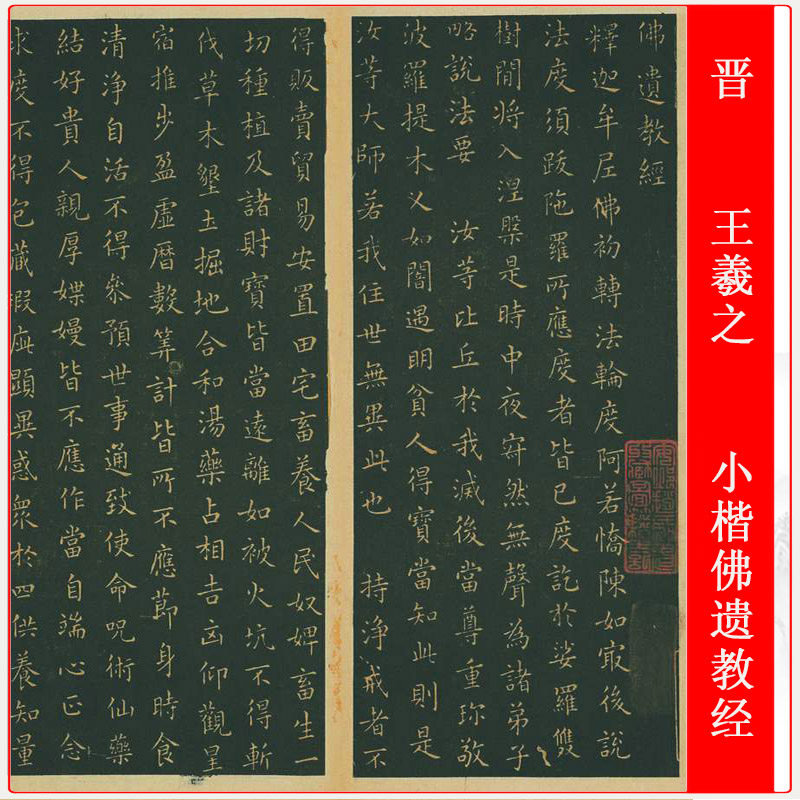 晋 王羲之 小楷佛遗教经
佛遺教經
釋迦牟尼佛初轉法輪度阿若憍陳如冣後說
法度須跋陁羅所應度者皆已度訖於娑羅雙
樹間將入涅槃是時中夜寂然無聲為諸弟子
略說法要 汝等比丘於我滅後當尊重珎敬
波羅提木叉如闇遇明貧人得寶當知此則是
汝等大師若我住世無異此也 持淨戒者不
得販賣貿易安置田宅畜養人民奴婢畜生一
切種植及諸財寶皆當遠離如被火坑不得斬
伐草木墾土掘地合和湯藥占相吉凶仰觀星
宿推步盈虛曆數筭計皆所不應莭身時食
清淨自活不得參預世事通致使命呪術仙藥
結好貴人親厚媟嫚皆不應作當自端心正念
求度不得包藏瑕疵顯異惑眾於四供養知量